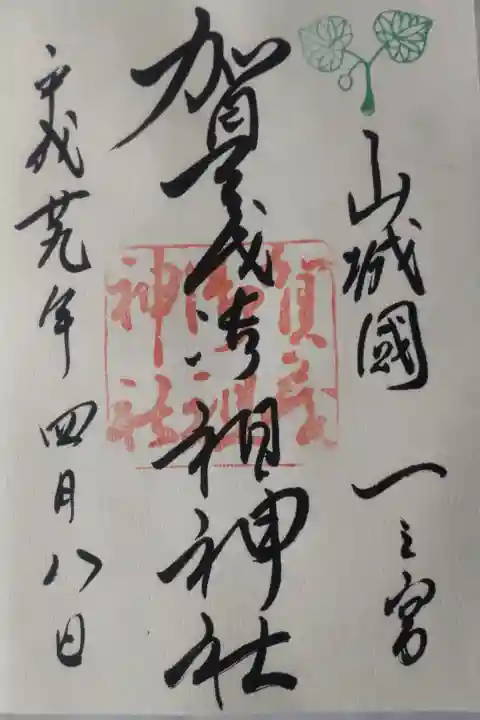 山城國 一之宮
賀茂御祖神社
賀茂御祖神社
平成廿九年四月八日